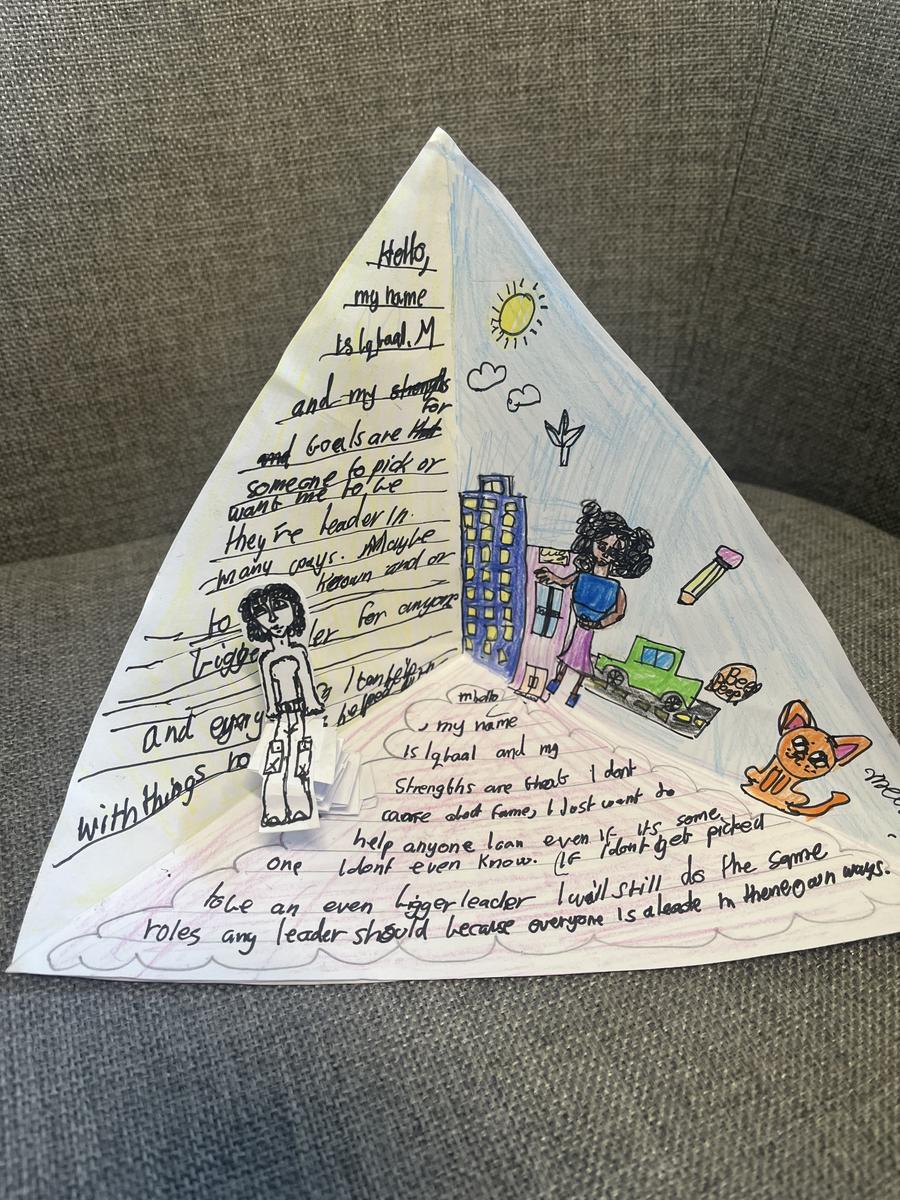 Hello,
my name
is Iqbaal. M
and my strengths
for
and Goals are that
someone to pick or
want me to be
they're leader in
many ways. Maybe
known and or
to
bigge ler for anyone
and every I can help
helped
with things no
my name
is Iqbaal and my
Strengths are thats I dont
caare about Fame, I Just want to
help anyone I can even if its some
one I dont even know. (IF I don't get picked
to be an even bigger leader I will still do the same
roles any leader should because everyone is a leade in there own ways.
Beep
Beep